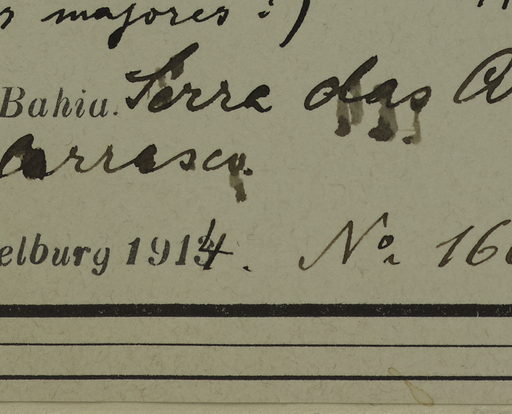 s majores?)
Bahia. Serra das A
Carrasco.
elburg 1914. No. 16